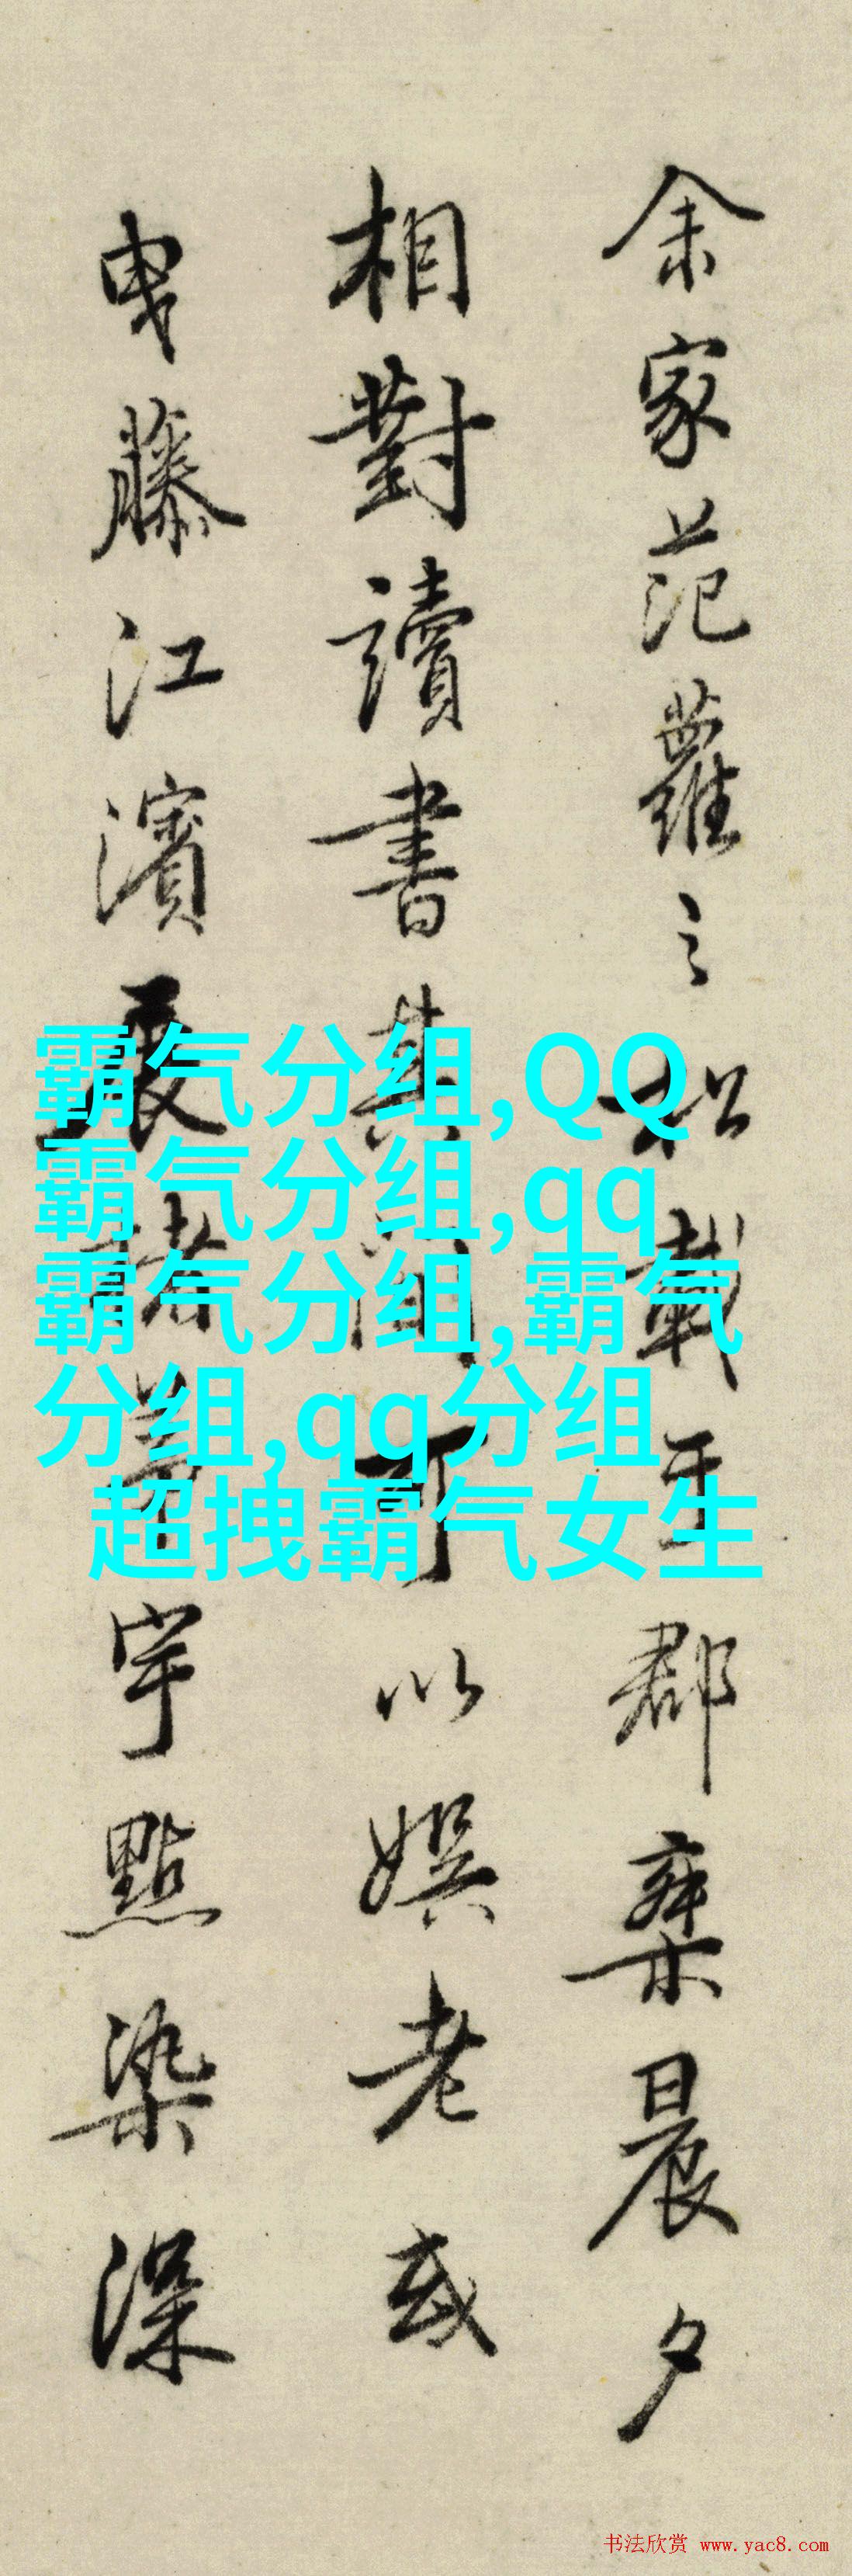 余家范蘿之松載于郡乘晨夕
相對讀書其間可以娯老或
曳藤江濱展諸

宇點染深
霸气分组,QQ
霸气分组,qq
霸气分组,霸气
分组,qq分组
超拽霸气女生
书法欣赏 www.yac8.com